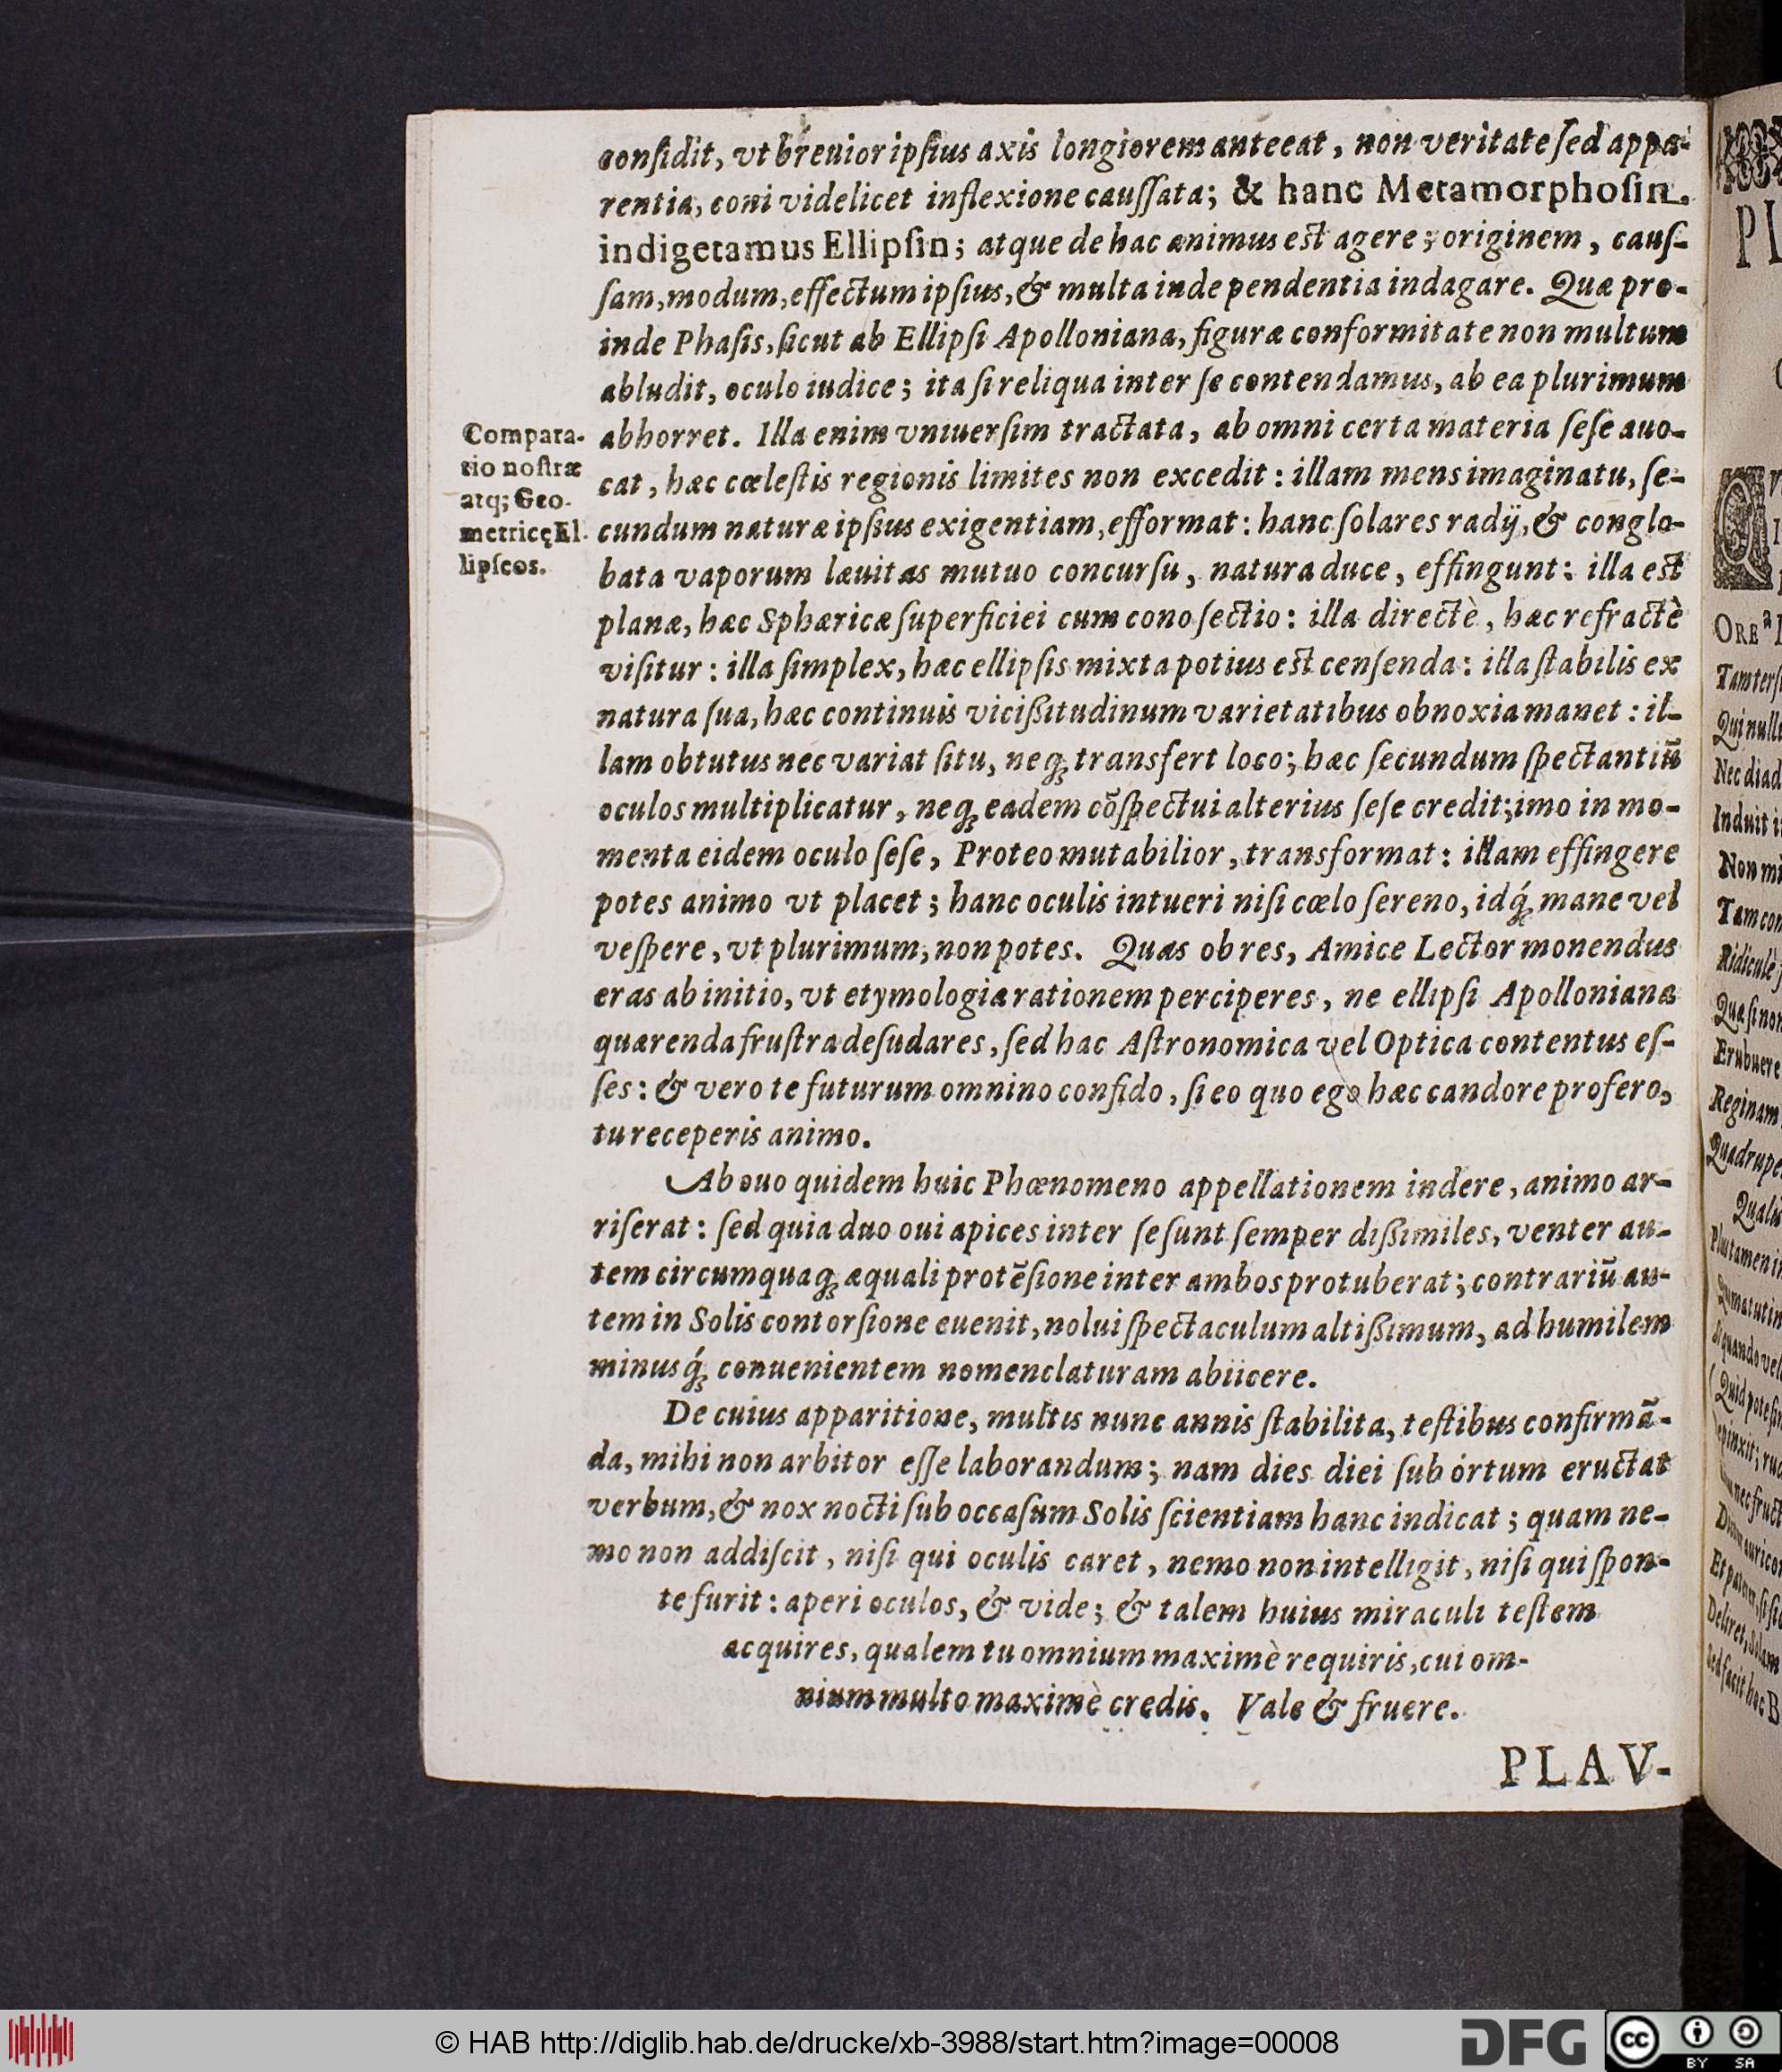 considit, vt breuior ipsius axis longiorem anteeat, non veritate sed appa-
rentia, coni videlicet inflexione caussata; & hanc Metamorphosin
indigetamus Ellipsin; atque de hac animus est agere; originem, caus-
sam, modum, effectum ipsius, & multa inde pendentia indagare. Quæ pro-
inde Phasis, sicut ab Ellipsi Apolloniana, figuræ conformitate non multum
abludit, oculo iudice; ita si reliqua inter se contendamus, ab ea plurimum
abhorret. Illa enim vniuersim tractata, ab omni certa materia sese auo-
cat, hæc cœlestis regionis limites non excedit: illam mens imaginatu, se-
cundum naturæ ipsius exigentiam, efformat: hanc solares radij, & conglo-
bata vaporum læuitas mutuo concursu, natura duce, effingunt: illa est
planæ, hæc Sphæricæ superficiei cum cono sectio: illa directè, hæc refractè
visitur: illa simplex, hæc ellipsis mixta potius est censenda: illa stabilis ex
natura sua, hæc continuis vicißitudinum varietatibus obnoxia manet: il-
lam obtutus nec variat situ, neq; transfert loco; hæc secundum spectantiũ
oculos multiplicatur, neq; eadem cõspectui alterius sese credit; imo in mo-
menta eidem oculo sese, Proteo mutabilior, transformat: illam effingere
potes animo vt placet; hanc oculis intueri nisi cœlo sereno, idq́; mane vel
vespere, vt plurimum, non potes. Quas ob res, Amice Lector monendus
eras ab initio, vt etymologiæ rationem perciperes, ne ellipsi Apolloniana
quærenda frustra desudares, sed hac Astronomica vel Optica contentus es-
ses: & vero te futurum omnino confido, si eo quo ego hæc candore profero,
tu receperis animo.
Compara-
tio nostræ
atq; Geo-
metricę El-
lipseos.
Ab ouo quidem huic Phœnomeno appellationem indere, animo ar-
riserat: sed quia duo oui apices inter se sunt semper dißimiles, venter au-
tem circumquaq; æquali protẽsione inter ambos protuberat; contrariũ au-
tem in Solis contorsione euenit, nolui spectaculum altißimum, ad humilem
minusq́; conuenientem nomenclaturam abiicere.
De cuius apparitione, multis nunc annis stabilita, testibus confirmã-
da, mihi non arbitor esse laborandum; nam dies diei sub ortum eructat
verbum, & nox nocti sub occasum Solis scientiam hanc indicat; quam ne-
mo non addiscit, nisi qui oculis caret, nemo non intelligit, nisi qui spon-
te furit: aperi oculos, & vide; & talem huius miraculi testem
acquires, qualem tu omnium maximè requiris, cui om-
nium multo maximè credis. Vale & fruere.
PLAV-
PL
ORE
Tam
Qui null
Nec diad
Induit
Non mi
Tam con
Ridiculè
Quasi non
Erubuere
Reginam
Quadrupe
Qualis
© HAB http://diglib.hab.de/drucke/xb-3988/start.htm?image=00008
DFG
cc
BY SA